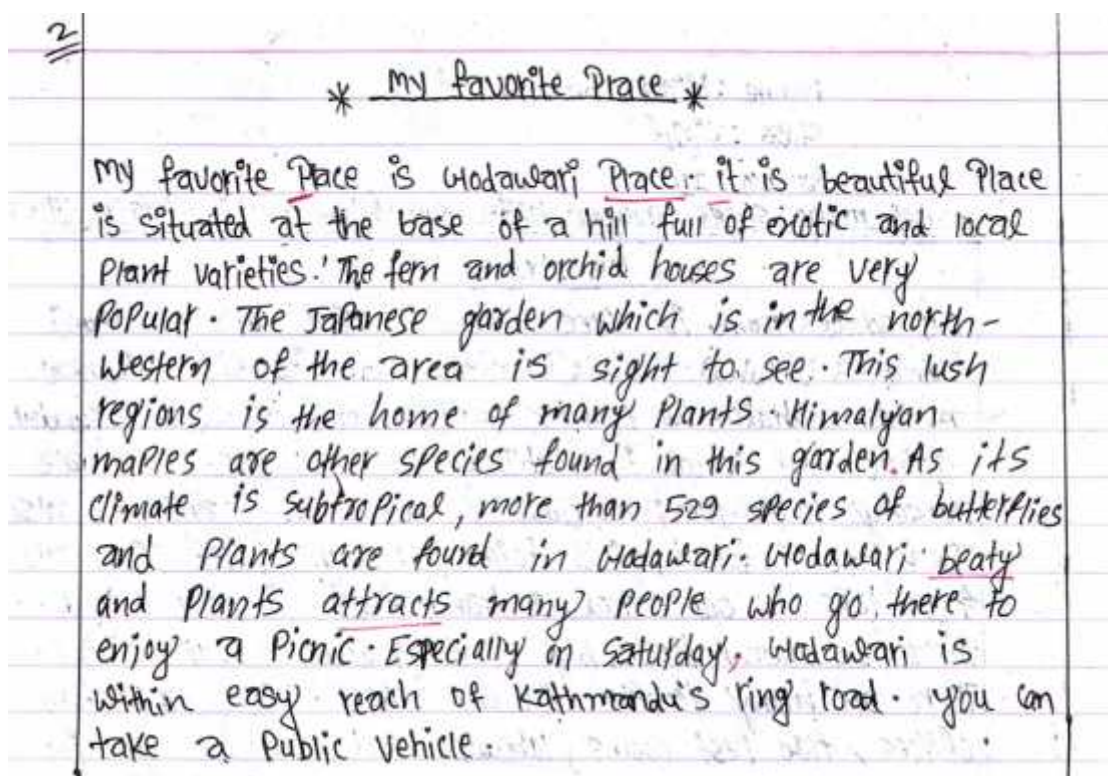 2
* My favorite Place *
My favorite Place is Godawari Place. it is beautiful Place
is situated at the base of a hill full of exotic and local
Plant varieties. The fern and orchid houses are very
Popular. The Japanese garden which is in the north-
Western of the area is sight to see. This lush
regions is the home of many Plants. Himalyan
maples are other species found in this garden. As its
climate is subtropical, more than 529 species of butterflies
and Plants are found in Godawari. Godawari beaty
and Plants attracts many People who go there to
enjoy a Picnic. Especially on Saturday, Godawari is
within easy reach of Kathmandu's ring road. you can
take a Public vehicle.